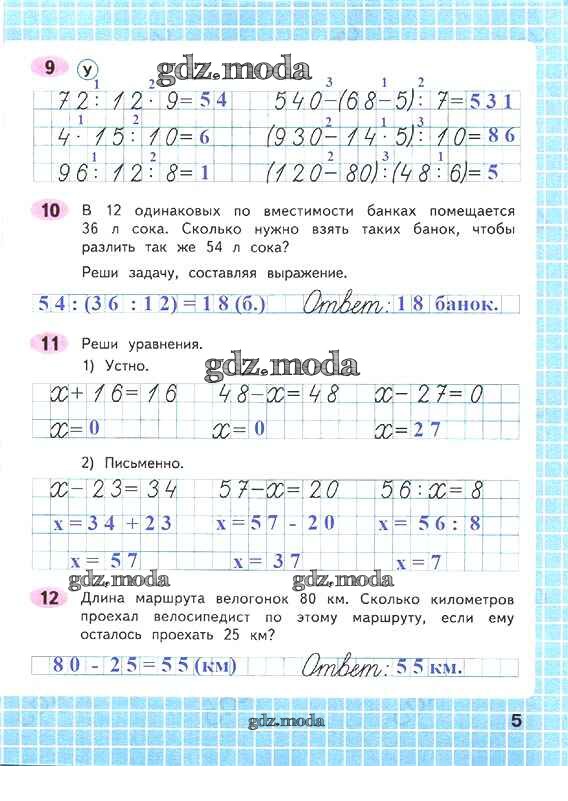 9 У gdz.moda
1 2 3 1 2
72:12·9=54 540-(68-5):7=531
1 2 2 1 3
4·15:10=6 (930-14·5):10=86
1 2 1 3 2
96:12:8=1 (120-80):(48:6)=5
10 В 12 одинаковых по вместимости банках помещается
36 л сока. Сколько нужно взять таких банок, чтобы
разлить так же 54 л сока?
Реши задачу, составляя выражение.
54:(36:12)=18(б.) Ответ: 18 банок.
11 Реши уравнения.
1) Устно. gdz.moda
x+16=16 48-x=48 x-27=0
x=0 x=0 x=27
2) Письменно.
x-23=34 57-x=20 56:x=8
x=34+23 x=57-20 x=56:8
x=57 x=37 x=7
gdz.moda gdz.moda
12 Длина маршрута велогонок 80 км. Сколько километров
проехал велосипедист по этому маршруту, если ему
осталось проехать 25 км?
80-25=55(км) Ответ: 55 км.
gdz.moda 5